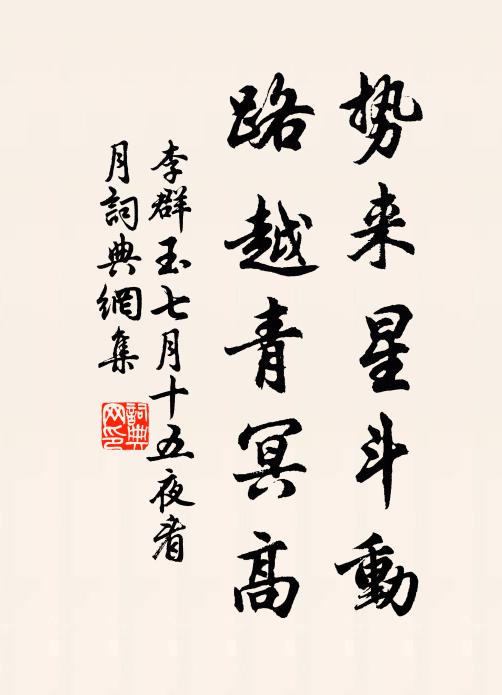 势来星斗動
路越青冥高
李群玉七月十五夜看
月詞典網集
詞典网印